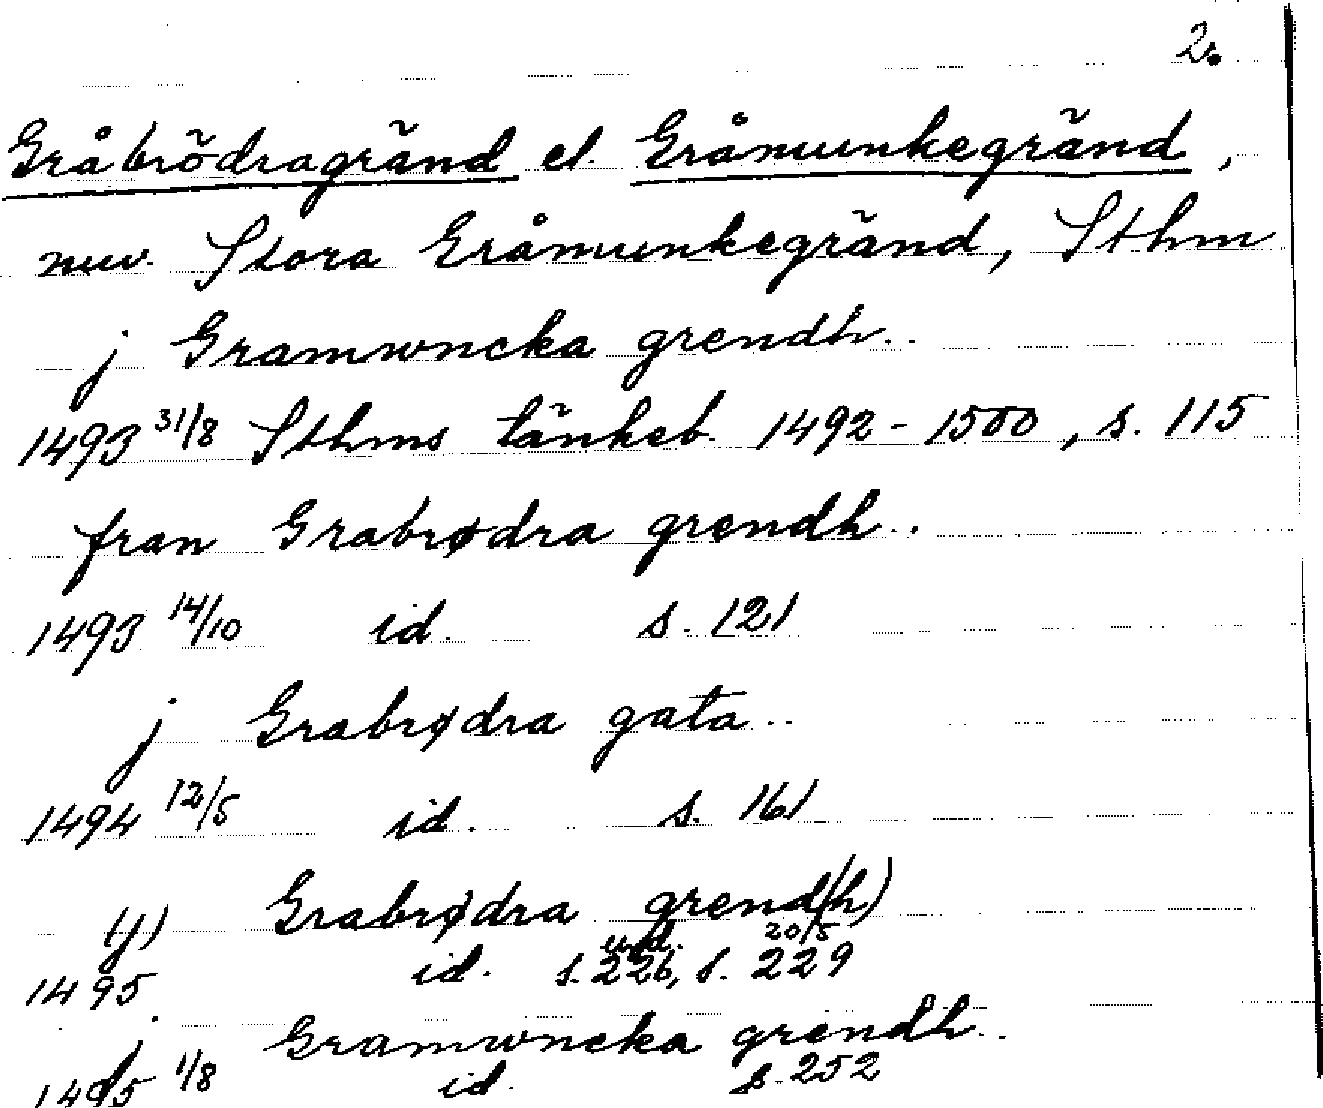 2.
Gråbrödragränd el. Gråmunkegränd,
nuv. Stora Gråmunkegränd, Sthm
j Gramwncka grendh..
1493 31/8 Sthms tänkeb. 1492-1500, s. 115
fran Grabrødra grendh..
1493 14/10 id. s. 121
j Grabrødra gata..
1494 12/5 id. s. 161
(j) Grabrødra grend(h)
1495 id. u.d. s. 226, 20/5 s. 229
j Gramwncka grendh..
1495 1/8 id. s. 252